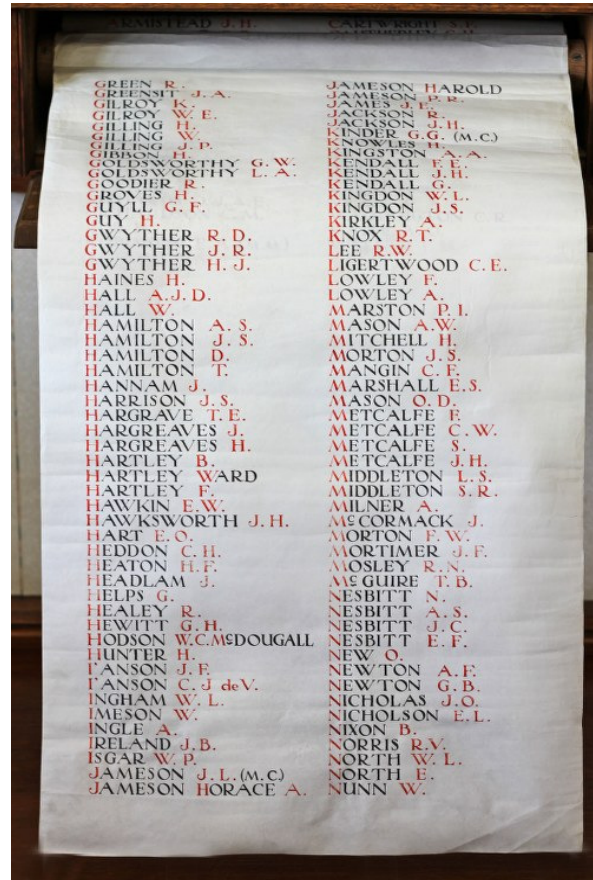 ARMISTEAD J.H.
CARTWRIGHT S.F.
GREEN R.
GREENSIT J.A.
GILROY K.
GILROY W.E.
GILLING H.
GILLING W.
GILLING J.P.
GIBBON H.
GOLDSWORTHY G.W.
GOLDSWORTHY L.A.
GOODIER R.
GROVES H.
GUYLL G.F.
GUY H.
GWYTHER R.D.
GWYTHER J.R.
GWYTHER H.J.
HAINES H.
HALL A.J.D.
HALL W.
HAMILTON A.S.
HAMILTON J.S.
HAMILTON D.
HAMILTON T.
HANNAM J.
HARRISON J.S.
HARGRAVE T.E.
HARGREAVES J.
HARGREAVES H.
HARTLEY B.
HARTLEY WARD
HARTLEY F.
HAWKIN E.W.
HAWKSWORTH J.H.
HART E.O.
HEDDON C.H.
HEATON H.F.
HEADLAM J.
HELPS G.
HEALEY R.
HEWITT G.H.
HODSON W.C.McDOUGALL
HUNTER H.
I'ANSON J.F.
I'ANSON C.J deV.
INGHAM W.L.
IMESON W.
INGLE A.
IRELAND J.B.
ISGAR W.P.
JAMESON J.L.(M.C.)
JAMESON HORACE A.
JAMESON HAROLD
JAMESON P.R.
JAMES J.E.
JACKSON R.
JACKSON J.H.
KINDER G.G. (M.C.)
KNOWLES H.
KINGSTON A.A.
KENDALL F.E.
KENDALL J.H.
KENDALL G.
KINGDON W.L.
KINGDON J.S.
KIRKLEY A.
KNOX R.T.
LEE R.W.
LIGERTWOOD C.E.
LOWLEY F.
LOWLEY A.
MARSTON P.I.
MASON A.W.
MITCHELL H.
MORTON J.S.
MANGIN C.F.
MARSHALL E.S.
MASON O.D.
METCALFE F.
METCALFE C.W.
METCALFE S.
METCALFE J.H.
MIDDLETON L.S.
MIDDLETON S.R.
MILNER A.
McCORMACK J.
MORTON F.W.
MORTIMER J.F.
MOSLEY R.N.
McGUIRE T.B.
NESBITT N.
NESBITT A.S.
NESBITT J.C.
NESBITT E.F.
NEW O.
NEWTON A.F.
NEWTON G.B.
NICHOLAS J.O.
NICHOLSON E.L.
NIXON B.
NORRIS R.V.
NORTH W.L.
NORTH E.
NUNN W.